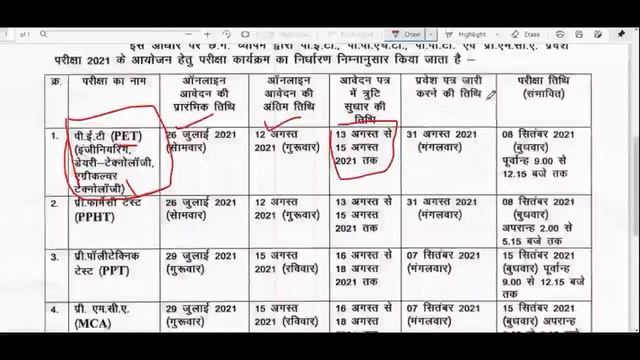 1 of 1
Draw
Highlight
Erase
इस आधार पर छ.ग. व्यापम द्वारा पी.ई.टी., पी.पी.एच.टी., पी.पी.टी. एवं प्री.एम.सी.ए. प्रवेश
परीक्षा 2021 के आयोजन हेतु परीक्षा कार्यक्रम का निर्धारण निम्नानुसार किया जाता है –
क्र. परीक्षा का नाम ऑनलाइन आवेदन की प्रारंमिक तिथि ऑनलाइन आवेदन की अंतिम तिथि आवेदन पत्र में त्रुटि सुधार की तिथि प्रवेश पत्र जारी करने की तिथि परीक्षा तिथि (संभावित)
1. पी.ई.टी (PET) (इंजीनियरिंग, डेयरी–टेक्नोलॉजी, एग्रीकल्चर टेक्नोलॉजी) 26 जुलाई 2021 (सोमवार) 12 अगस्त 2021 (गुरूवार) 13 अगस्त से 15 अगस्त 2021 तक 31 अगस्त 2021 (मंगलवार) 08 सितंबर 2021 (बुधवार) पूर्वान्ह 9.00 से 12.15 बजे तक
2. प्री.फार्मेसी टेस्ट (PPHT) 26 जुलाई 2021 (सोमवार) 12 अगस्त 2021 (गुरूवार) 13 अगस्त से 15 अगस्त 2021 तक 31 अगस्त 2021 (मंगलवार) 08 सितंबर 2021 (बुधवार) अपरान्ह 2.00 से 5.15 बजे तक
3. प्री.पॉलीटेक्निक टेस्ट (PPT) 29 जुलाई 2021 (गुरूवार) 15 अगस्त 2021 (रविवार) 16 अगस्त से 18 अगस्त 2021 तक 07 सितंबर 2021 (मंगलवार) 15 सितंबर 2021 (बुधवार) पूर्वान्ह 9.00 से 12.15 बजे तक
4. प्री एम.सी.ए. (MCA) 29 जुलाई 2021 (गुरूवार) 15 अगस्त 2021 (रविवार) 16 अगस्त से 18 अगस्त 07 सितंबर 2021 (मंगलवार) 15 सितंबर 2021 (बुधवार) अपरान्ह